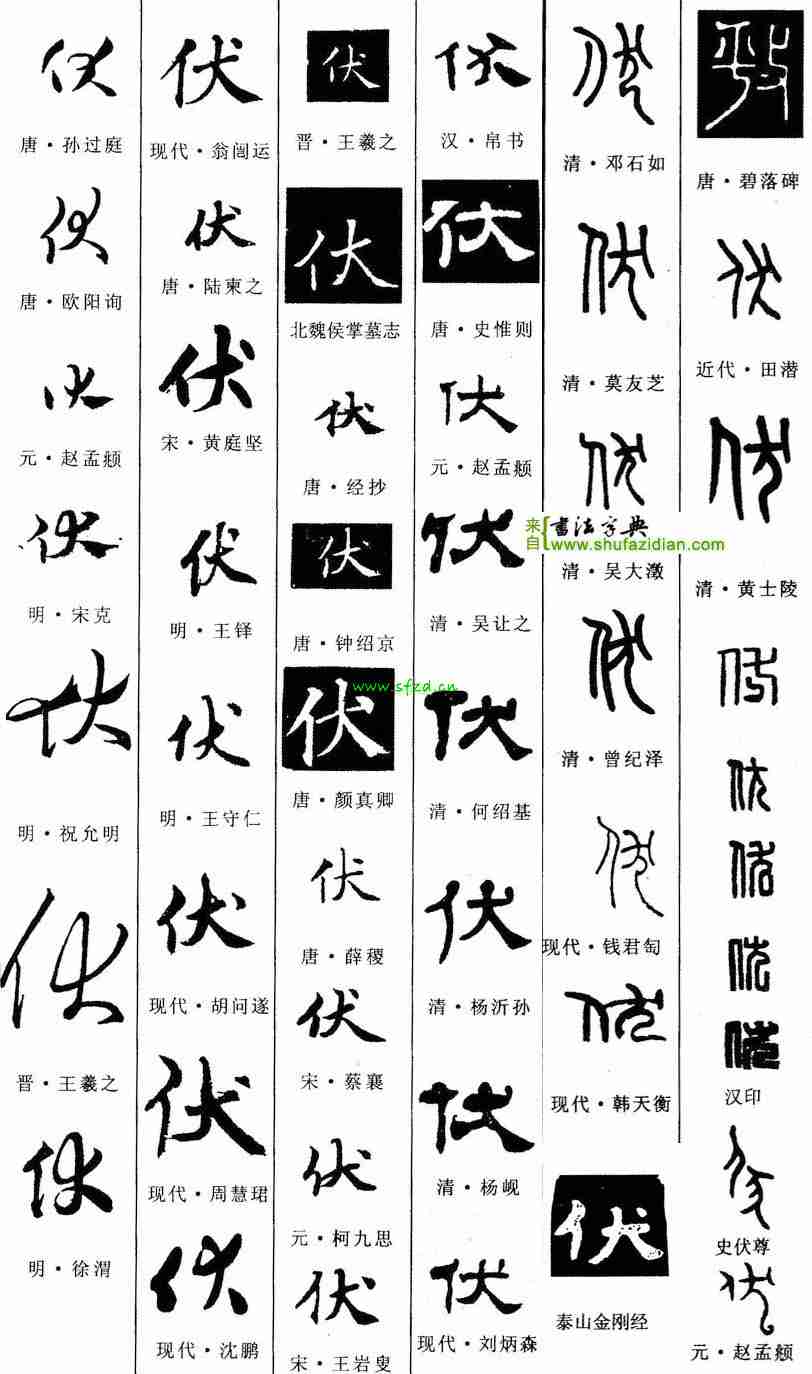 伏
唐·孙过庭
伏
唐·欧阳询
伏
元·赵孟頫
伏
明·宋克
伏
明·祝允明
伏
晋·王羲之
伏
明·徐渭
伏
现代·翁闿运
伏
唐·陆柬之
伏
宋·黄庭坚
伏
明·王铎
伏
明·王守仁
伏
现代·胡问遂
伏
现代·周慧珺
伏
现代·沈鹏
伏
晋·王羲之
伏
北魏侯掌墓志
伏
唐·经抄
伏
唐·钟绍京
www.sfzd.cn
伏
唐·颜真卿
伏
唐·薛稷
伏
宋·蔡襄
伏
元·柯九思
伏
宋·王岩叟
伏
汉·帛书
伏
唐·史惟则
伏
元·赵孟頫
伏
清·吴让之
伏
清·何绍基
伏
清·杨沂孙
伏
清·杨岘
伏
现代·刘炳森
伏
清·邓石如
伏
清·莫友芝
伏
来自 书法字典
www.shufazidian.com
清·吴大澂
伏
清·曾纪泽
伏
现代·钱君匋
伏
现代·韩天衡
伏
泰山金刚经
唐·碧落碑
伏
近代·田潜
伏
清·黄士陵
伏
伏
伏
伏
伏
汉印
伏
史伏尊
伏
元·赵孟頫